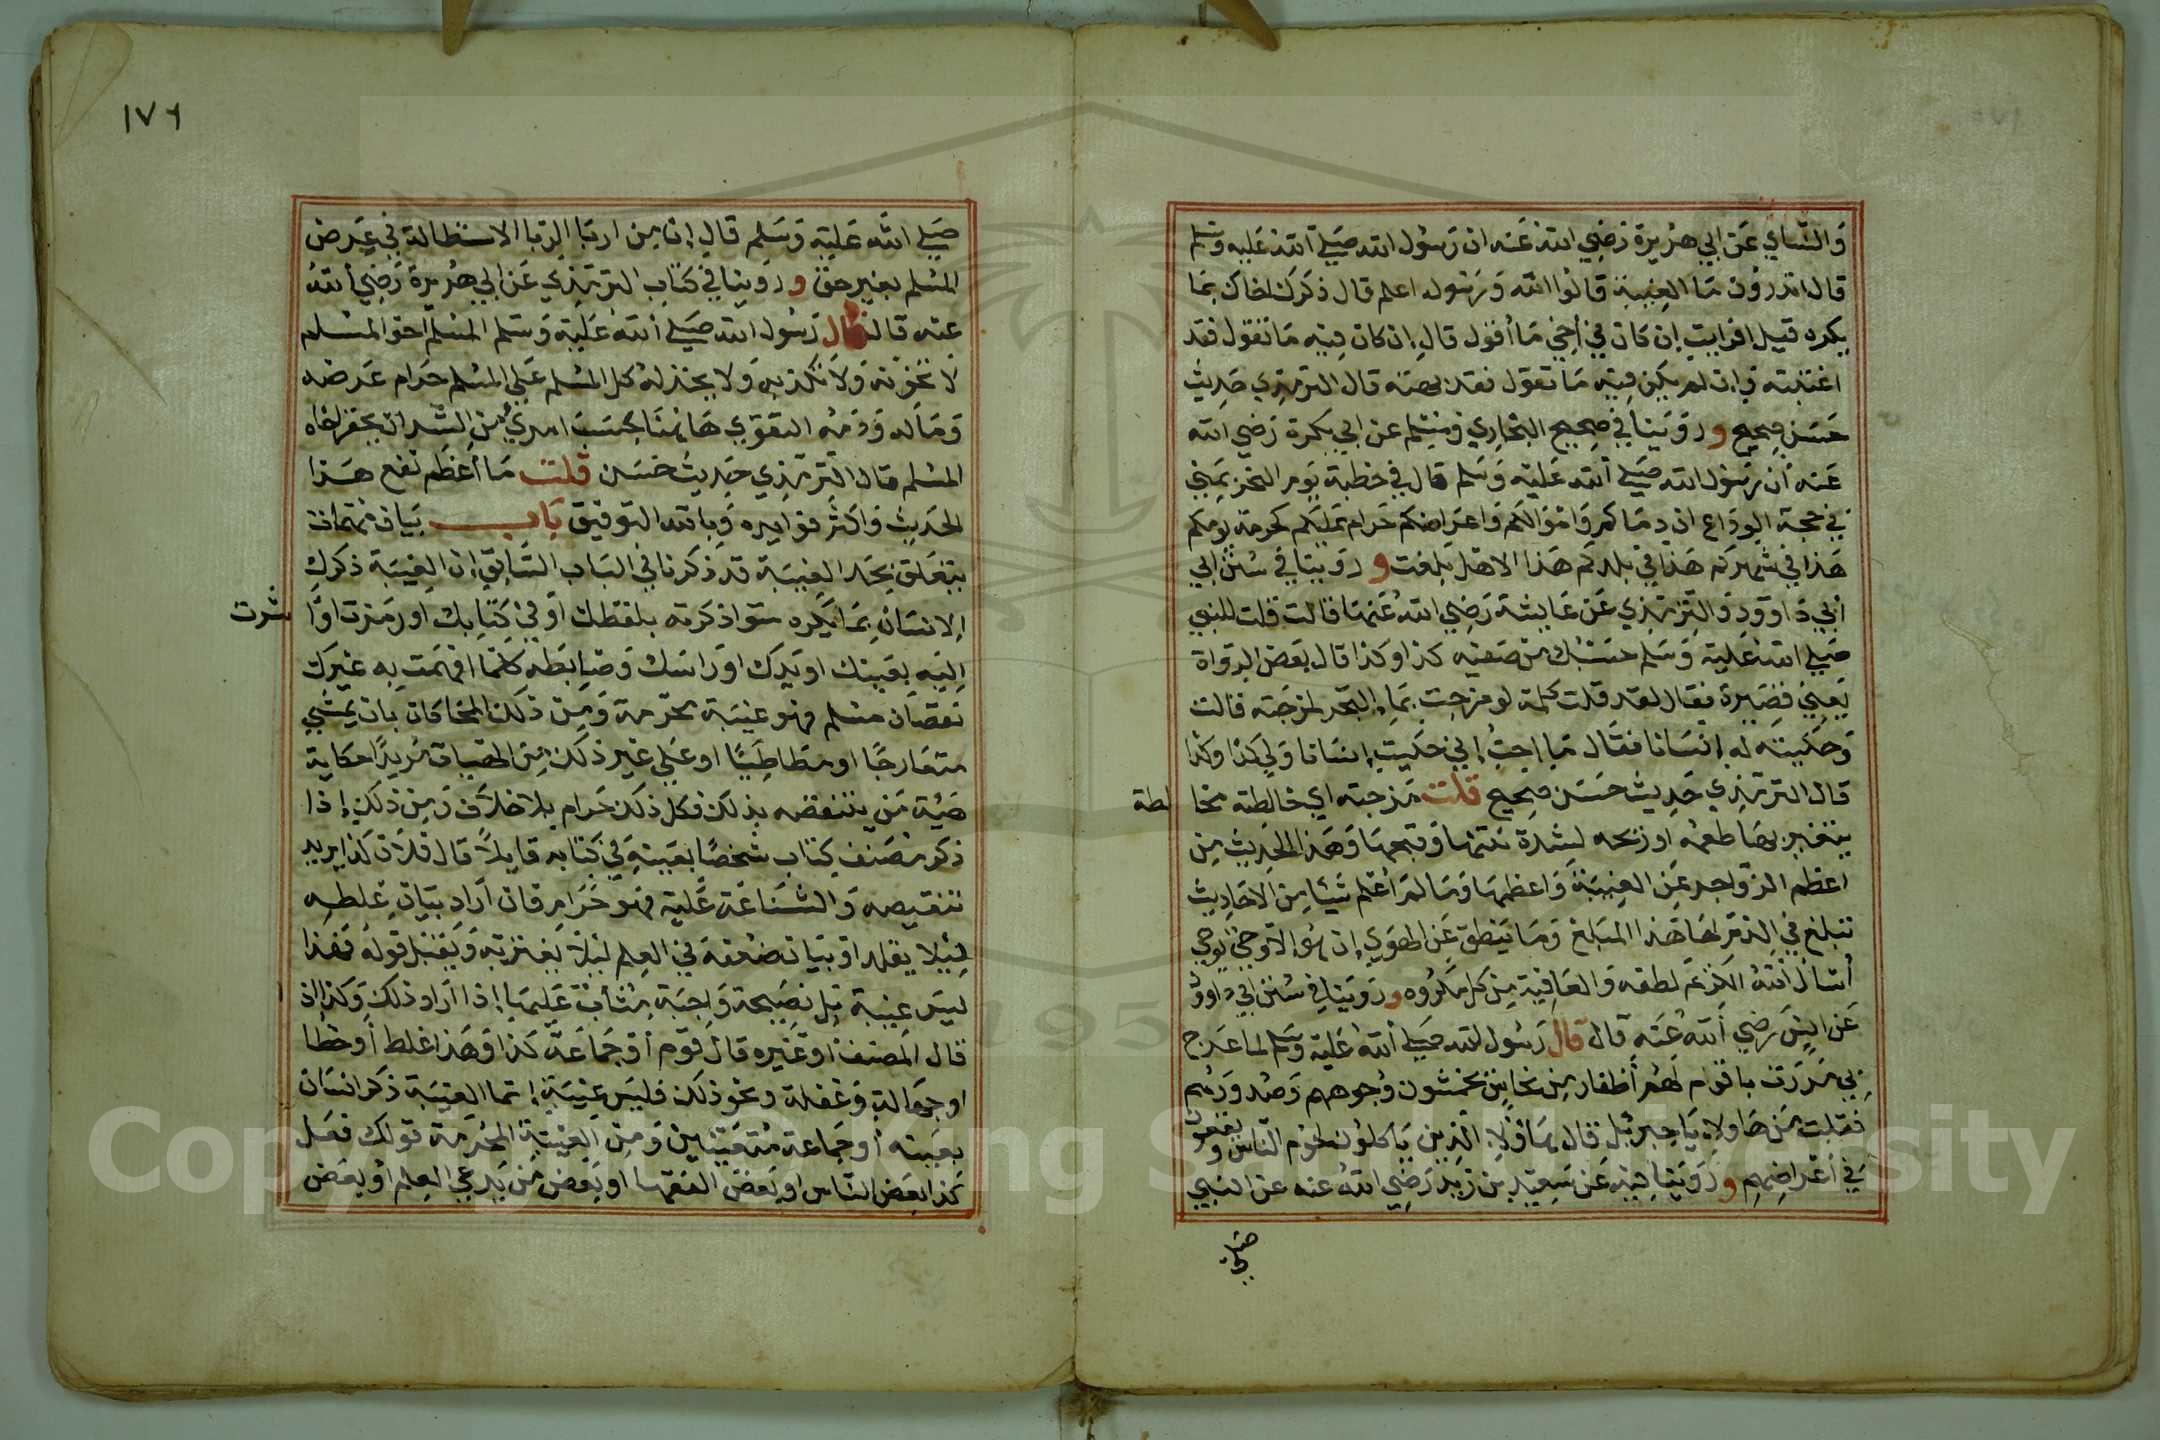 والنساي عن ابي هريرة رضي الله عنه ان رسول الله صلي الله عليه وسلم
قال اتدرون ما الغيبة قالوا الله ورسوله اعلم قال ذكرك اخاك بما
يكره قيل افرايت إن كان في أخي ما أقول قال إن كان فيه ما تقول فقد
اغتبته وان لم يكن فيه ما تقول فقد بهته قال الترمذي حديث
حسن صحيح و روينا في صحيح البخاري ومسلم عن ابي بكرة رضي الله
عنه أن رسول الله صلي الله عليه وسلم قال في خطبة يوم النحر بمني
في حجة الوداع ان دماكم واموالكم واعراضكم حرام عليكم كحرمة يومكم
هذا في شهركم هذا في بلدكم هذا الا هل بلغت و روينا في سنن ابي
ابي داوود والترمذي عن عايشة رضي الله عنها قالت قلت للنبي
صلي الله عليه وسلم حسبك من صفيه كذا وكذا قال بعض الرواة
يعني قصيرة فقال لقد قلت كلمة لو مزجت بماء البحر لمزجته قالت
وحكيته له إنسانا فقال ما احب إني حكيت إنسانا ولي كذا وكذا
قال الترمذي حديث حسن صحيح قلت مزجته اي خالطته مخا
لطة
يتغير بها طعمه او ريحه لشدة نتنها وقبحها وهذا الحديث من
اعظم الزواجر عن الغيبة واعظمها وما لم أعلم شيئا من الاحاديث
تبلغ في الذم لها هذا المبلغ وما ينطق عن الهوي إن هو إلا وحي يوحي
أسال الله الكريم لطفه والعافية من كل مكروه و روينا في سنن ابي داوود
عن انس رضي الله عنه قال قال رسول الله صلي الله عليه وسلم لما عرج
بي مررت باقوام لهم أظفار من نحاس يخمشون وجوههم وصدورهم
فقلت من هاولاء يا جبريل قال هاؤلاء الذين ياكلون لحوم الناس ويقعون
في أعراضهم و روينا فيه عن سعيد بن زيد رضي الله عنه عن النبي
صلي
١٧٦
صلي الله عليه وسلم قال إن من اربا الربا الاستطالة في عرض
المسلم بغير حق و روينا في كتاب الترمذي عن ابي هريرة رضي الله
عنه قال قال رسول الله صلي الله عليه وسلم المسلم اخو المسلم
لا يخونه ولا يكذبه ولا يخذله كل المسلم علي المسلم حرام عرضه
وماله ودمه التقوي هاهنا بحسب امرئ من الشر ان يحقر اخاه
المسلم قال الترمذي حديث حسن قلت ما أعظم نفع هذا
الحديث واكثر فوايده وبالله التوفيق باب بيان مهمات
يتعلق بحد الغيبة قد ذكرنا في الباب السابق ان الغيبة ذكرك
الإنسان بما يكره سوا ذكرته بلفظك أو في كتابك او رمزت او ا
شرت
إليه بعينك او يدك او راسك وضابطه كلما افهمت به غيرك
نقصان مسلم فهو غيبة محرمة ومن ذلك المحاكاة بان يمشي
متعارجا او مطاطيا او علي غير ذلك من الهيات مريدا حكاية
هيئة من ينتقصه بذلك فكل ذلك حرام بلا خلاف ومن ذلك إذا
ذكر مصنف كتاب شخصا بعينه في كتابه قايلا قال فلان كذا يريد
تنقيصه والشناعة عليه فهو حرام فان أراد بيان غلطه
ليلا يقلد او بيان ضعفه في العلم ليلا يغتر به ويقبل قوله فهذا
ليس غيبة بل نصيحة واجبة يثاب عليها إذا اراد ذلك وكذا إذ
قال المصنف او غيره قال قوم أو جماعة كذا وهذا غلط أو خطا
او جهالة وغفلة ونحو ذلك فليس غيبة إنما الغيبة ذكر انسان
بعينه أو جماعة متعينين ومن الغيبة المحرمة قولك فعل
كذا بعض الناس او بعض الفقها او بعض من يدعي العلم أو بعض